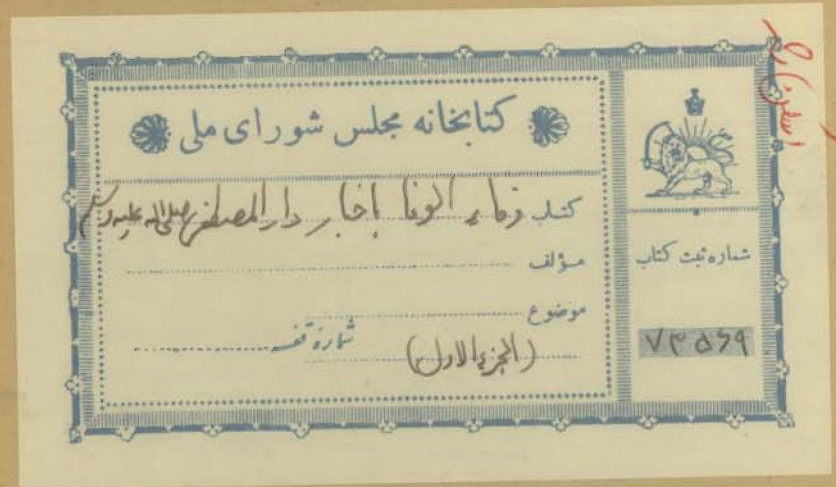 کتابخانه مجلس شورای ملی
کتاب وفاء الوفا باخبار دار المصطفی صلی الله علیه وسلم
مؤلف
موضوع
شماره قفسه
(الجزء الاول)
شماره ثبت کتاب
۷۳۵۶۹